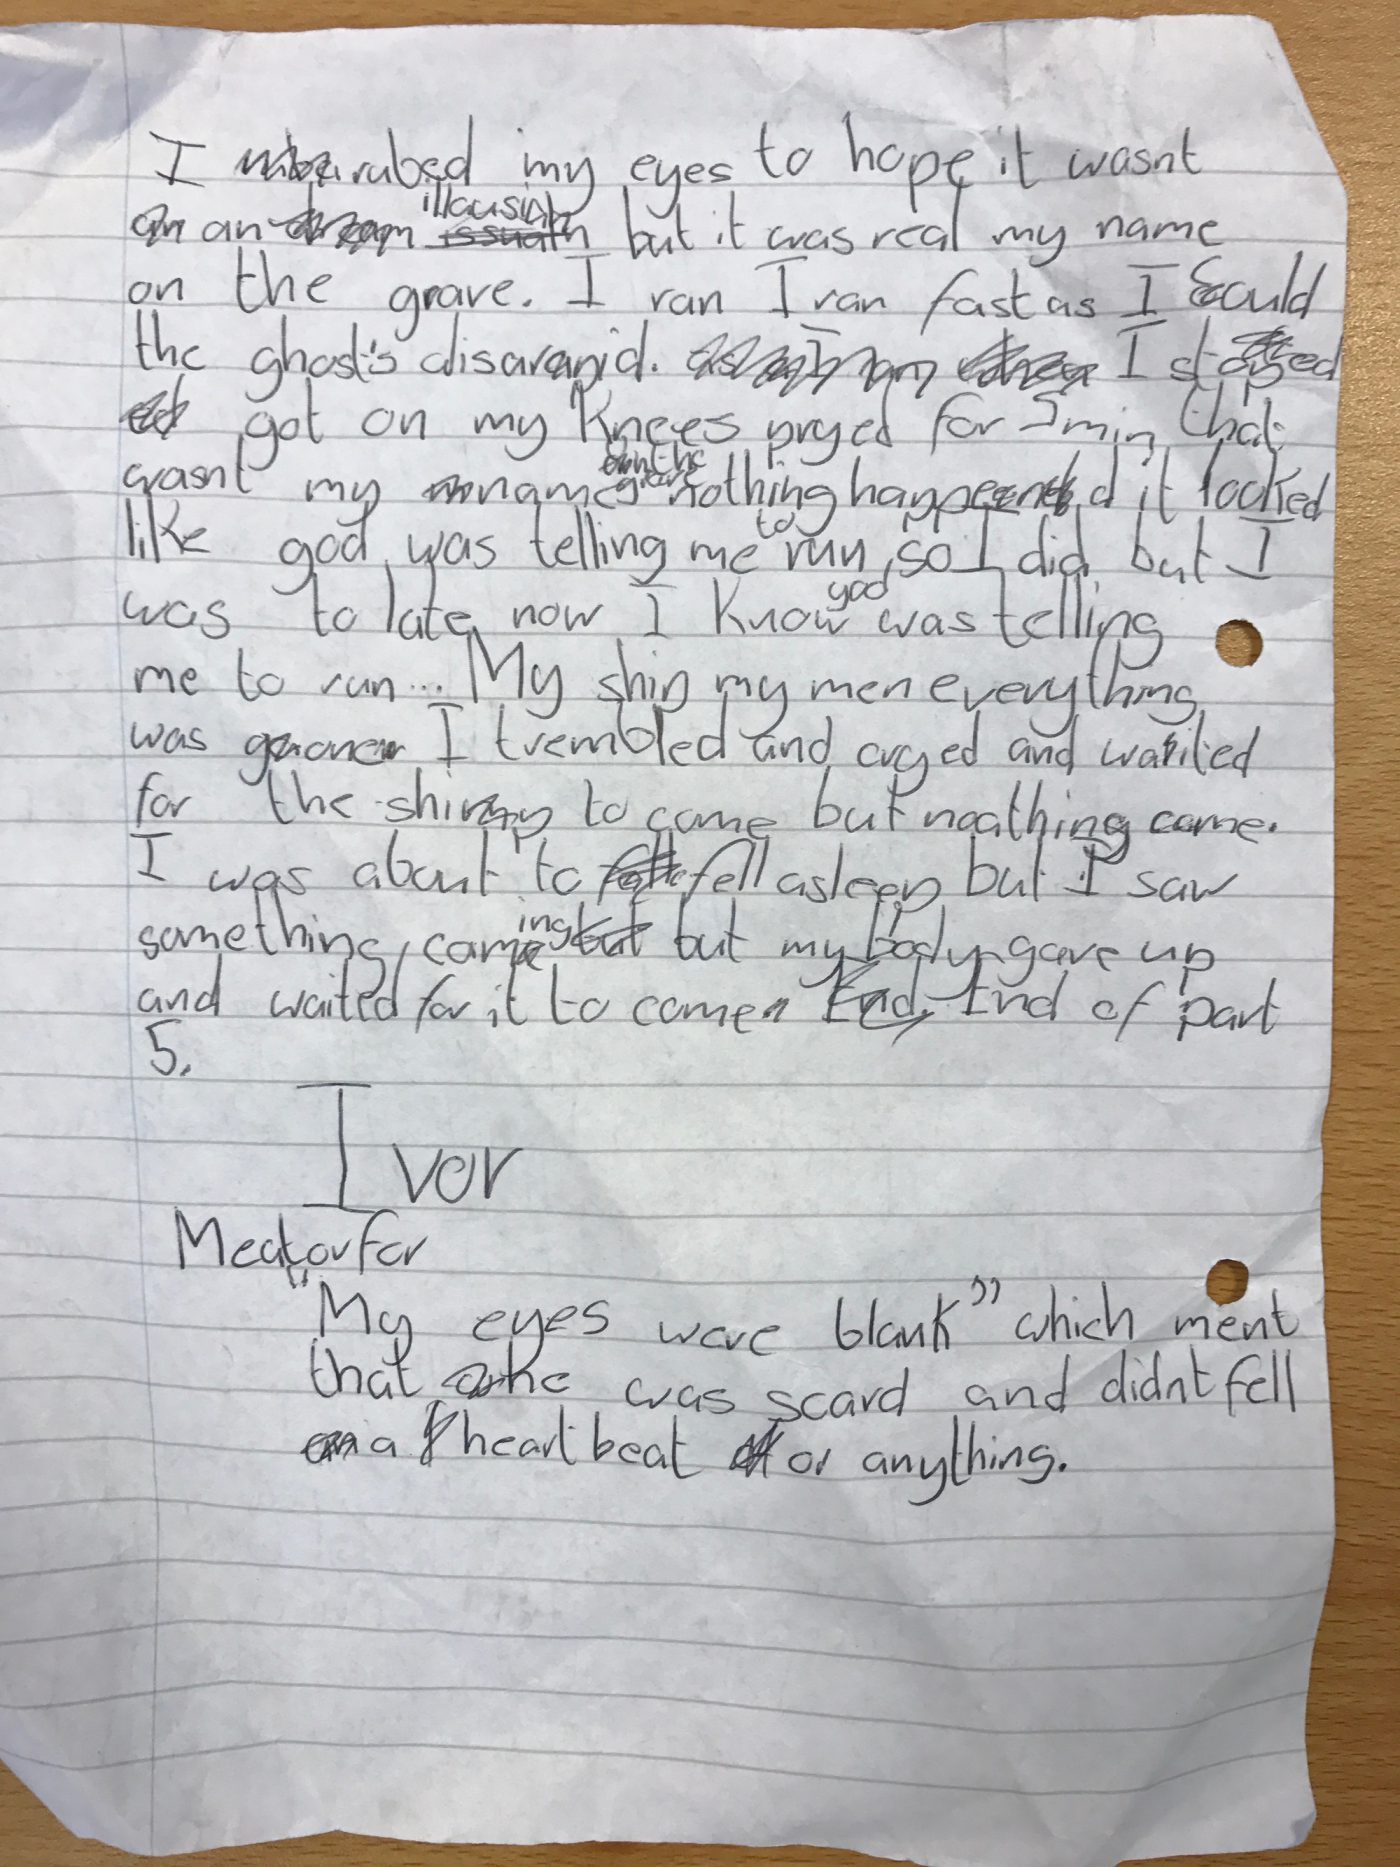 I rubed my eyes to hope it wasnt
an illausion but it was real my name
on the grave. I ran I ran fast as I could
the ghost's disarapid. I stopped
got on my knees pryed for 5 min that
wasnt my name on the grave nothing happened it looked
like god was telling me to run so I did but I
was to late now I know god was telling
me to run... My ship my men everything
was gone I trembled and cryed and waited
for the ship to come but noathing come.
I was about to fell asleep but I saw
something coming but my body gave up
and waited for it to come. End of part
5.
Ivor
Meatorfor
"My eyes were blank" which ment
that he was scard and didnt fell
a heart beat or anything.